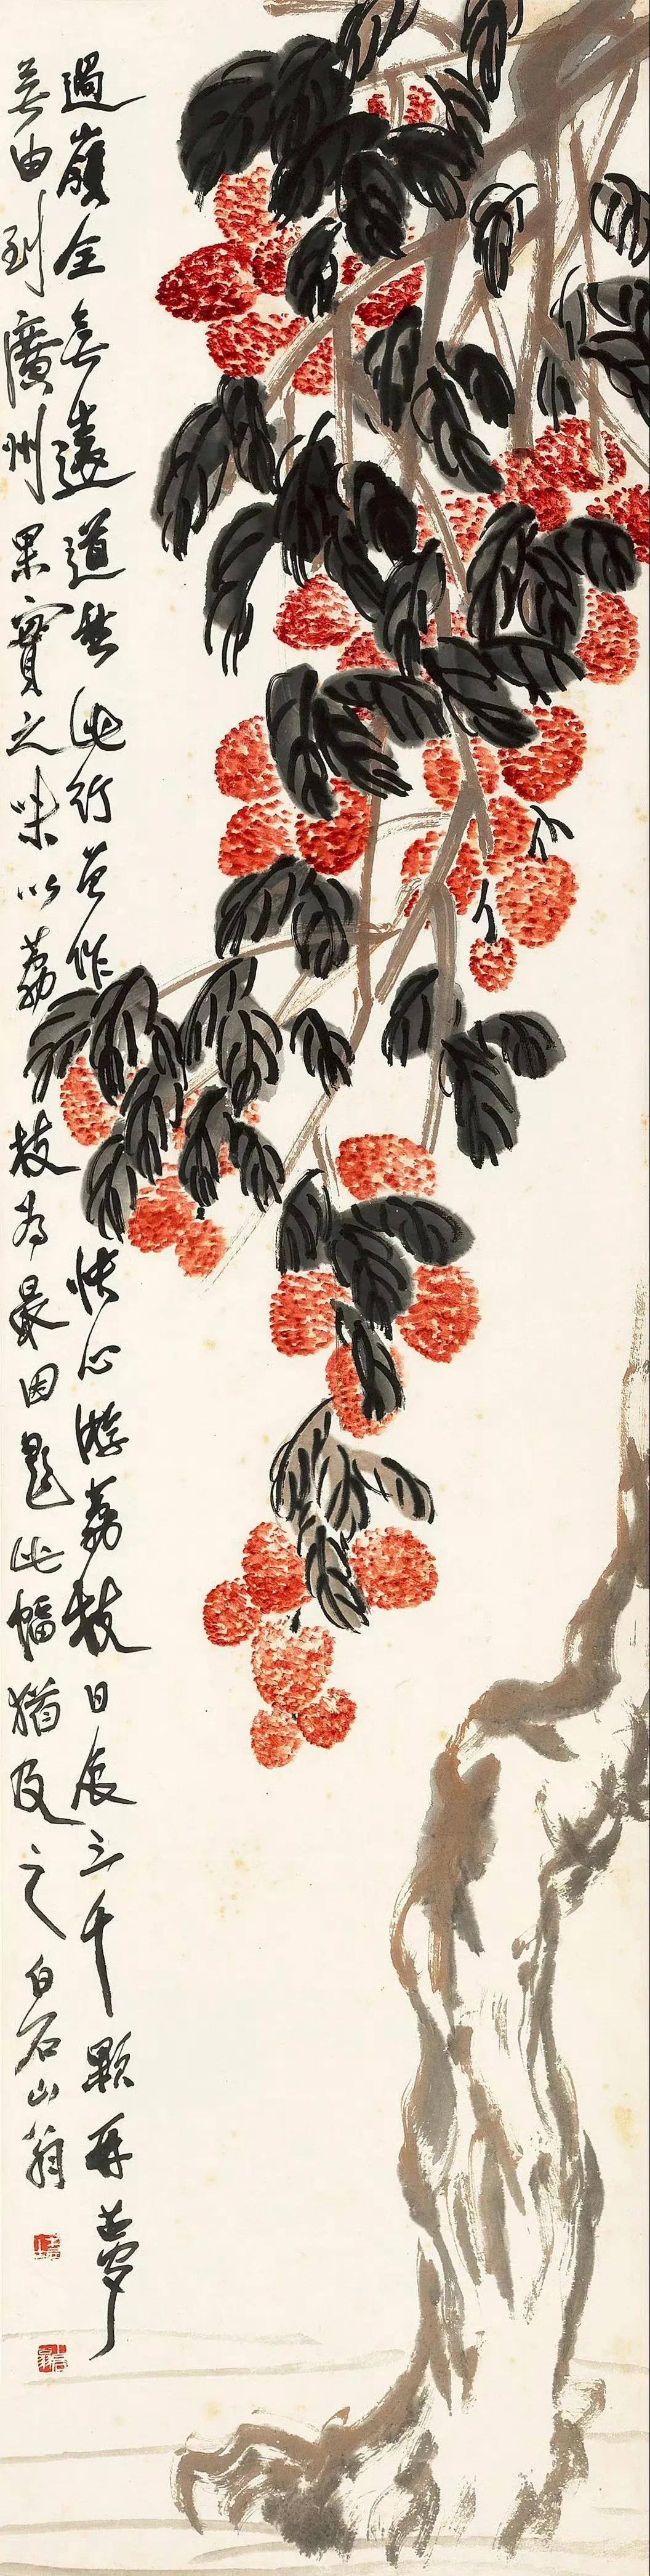 過嶺全無遠道愁此行曾作快心游荔枝日食三千顆再夢
無由到廣州果實之味以荔枝為最因題此幅猶及之白石山翁